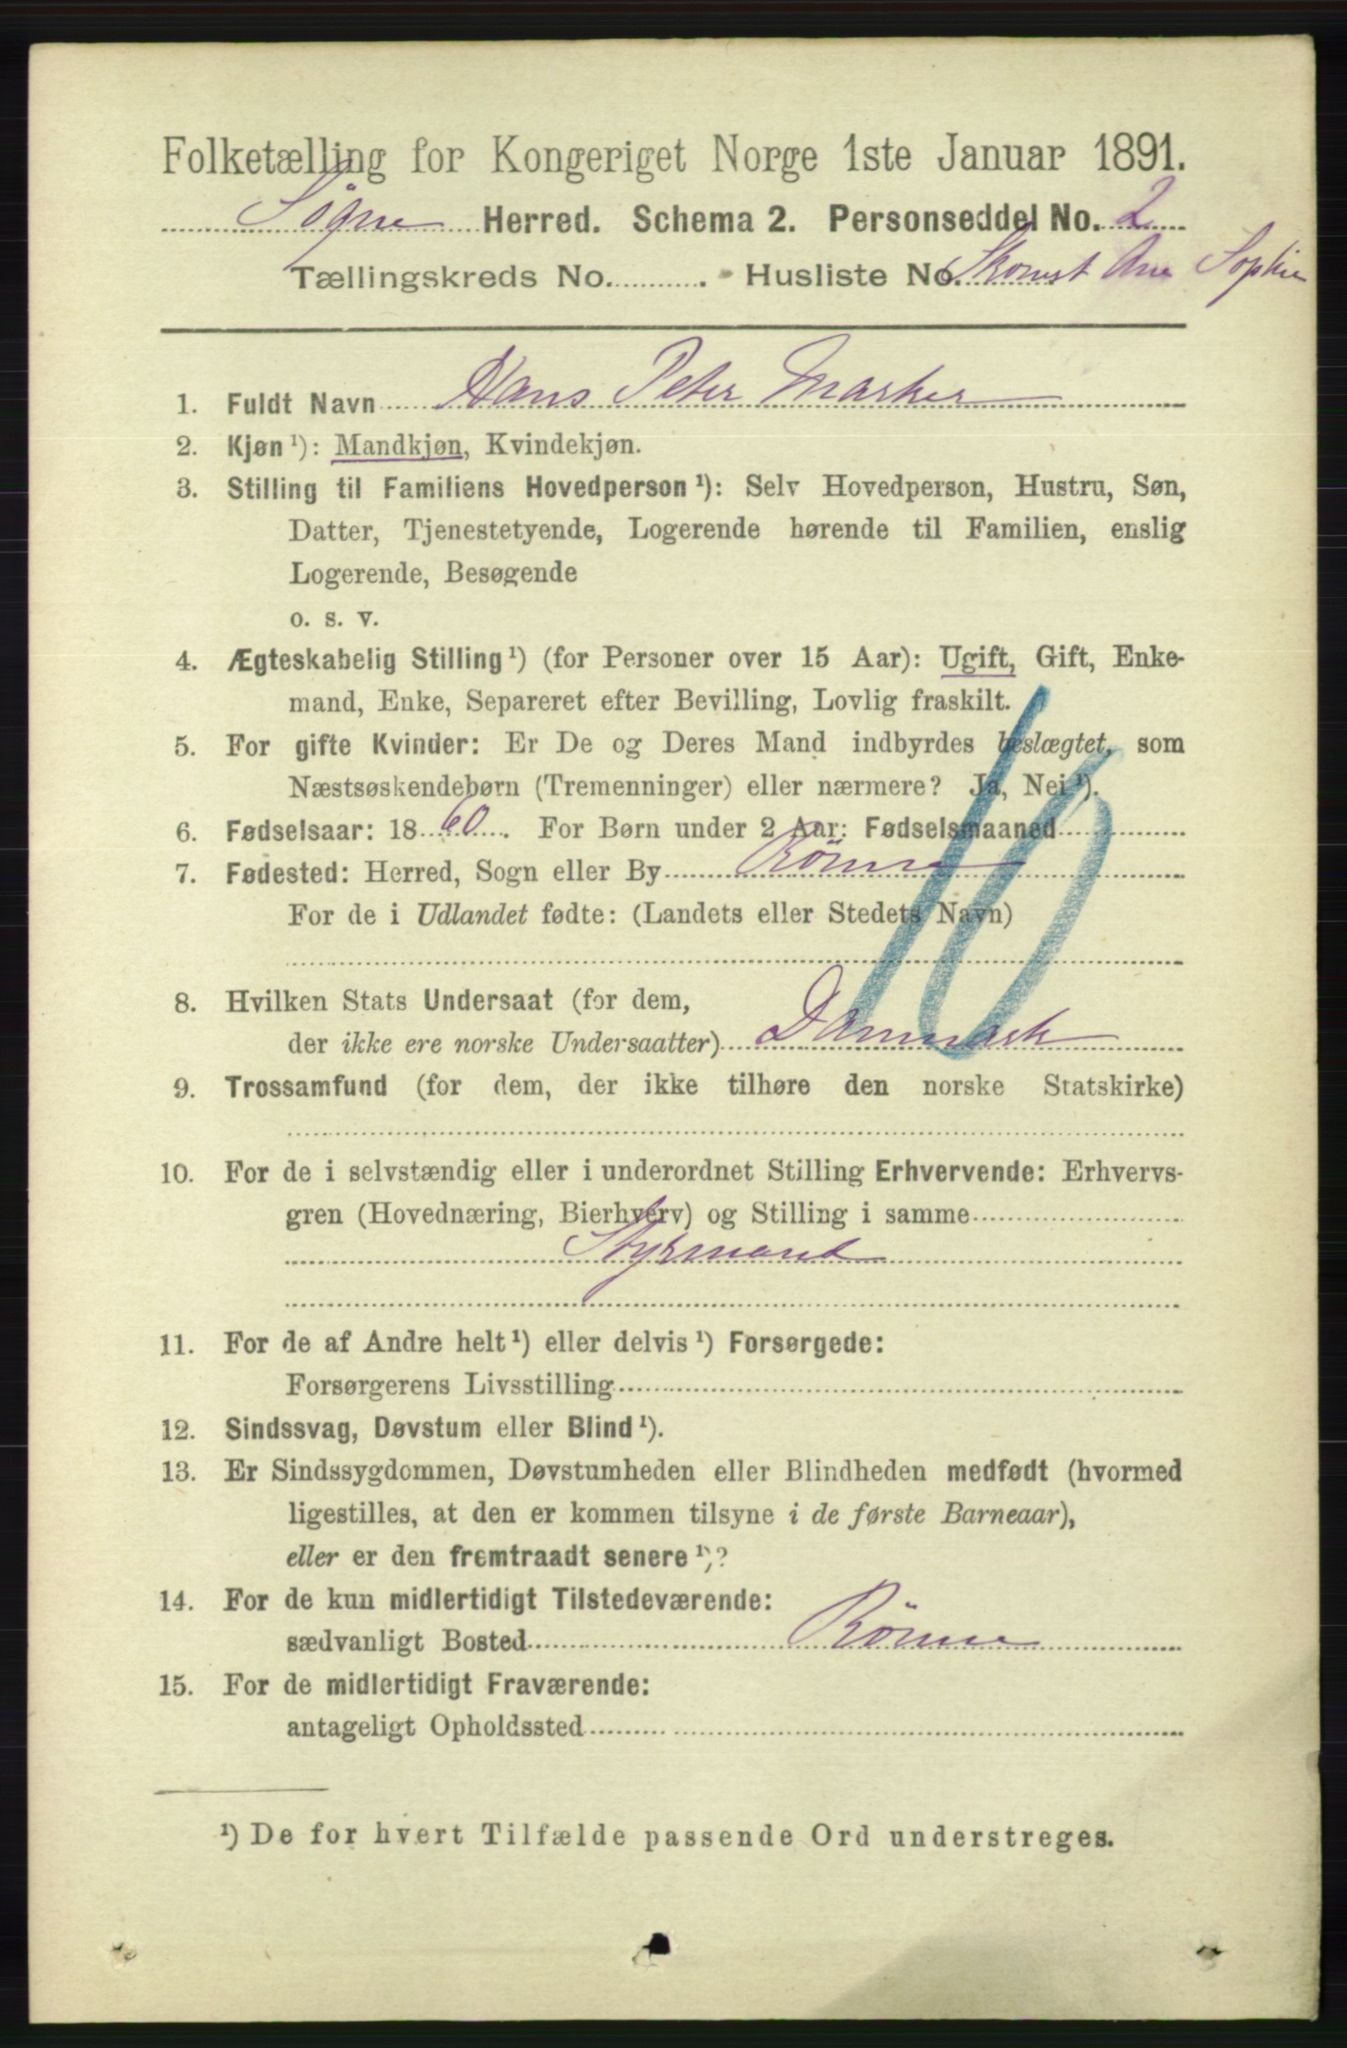 Folketælling for Kongeriget Norge 1ste Januar 1891.
Søgne Herred. Schema 2. Personseddel No. 2
Tællingskreds No. . Husliste No. Skonnst Ane Sophie
1. Fuldt Navn Hans Peter Marker
2. Kjøn¹): Mandkjøn, Kvindekjøn.
3. Stilling til Familiens Hovedperson¹): Selv Hovedperson, Hustru, Søn,
Datter, Tjenestetyende, Logerende hørende til Familien, enslig
Logerende, Besøgende
o. s. v.
4. Ægteskabelig Stilling¹) (for Personer over 15 Aar): Ugift, Gift, Enke-
mand, Enke, Separeret efter Bevilling, Lovlig fraskilt.
5. For gifte Kvinder: Er De og Deres Mand indbyrdes beslægtet, som
Næstsøskendebørn (Tremenninger) eller nærmere? Ja, Nei¹).
10
6. Fødselsaar: 1860. For Børn under 2 Aar: Fødselsmaaned
7. Fødested: Herred, Sogn eller By Rönne
For de i Udlandet fødte: (Landets eller Stedets Navn)
8. Hvilken Stats Undersaat (for dem,
der ikke ere norske Undersaatter) Danmark
9. Trossamfund (for dem, der ikke tilhøre den norske Statskirke)
10. For de i selvstændig eller i underordnet Stilling Erhvervende: Erhvervs-
gren (Hovednæring, Bierhverv) og Stilling i samme
Styrmand
11. For de af Andre helt¹) eller delvis¹) Forsørgede:
Forsørgerens Livsstilling
12. Sindssvag, Døvstum eller Blind¹).
13. Er Sindssygdommen, Døvstumheden eller Blindheden medfødt (hvormed
ligestilles, at den er kommen tilsyne i de første Barneaar),
eller er den fremtraadt senere¹)?
14. For de kun midlertidigt Tilstedeværende:
sædvanligt Bosted Rönne
15. For de midlertidigt Fraværende:
antageligt Opholdssted
¹) De for hvert Tilfælde passende Ord understreges.